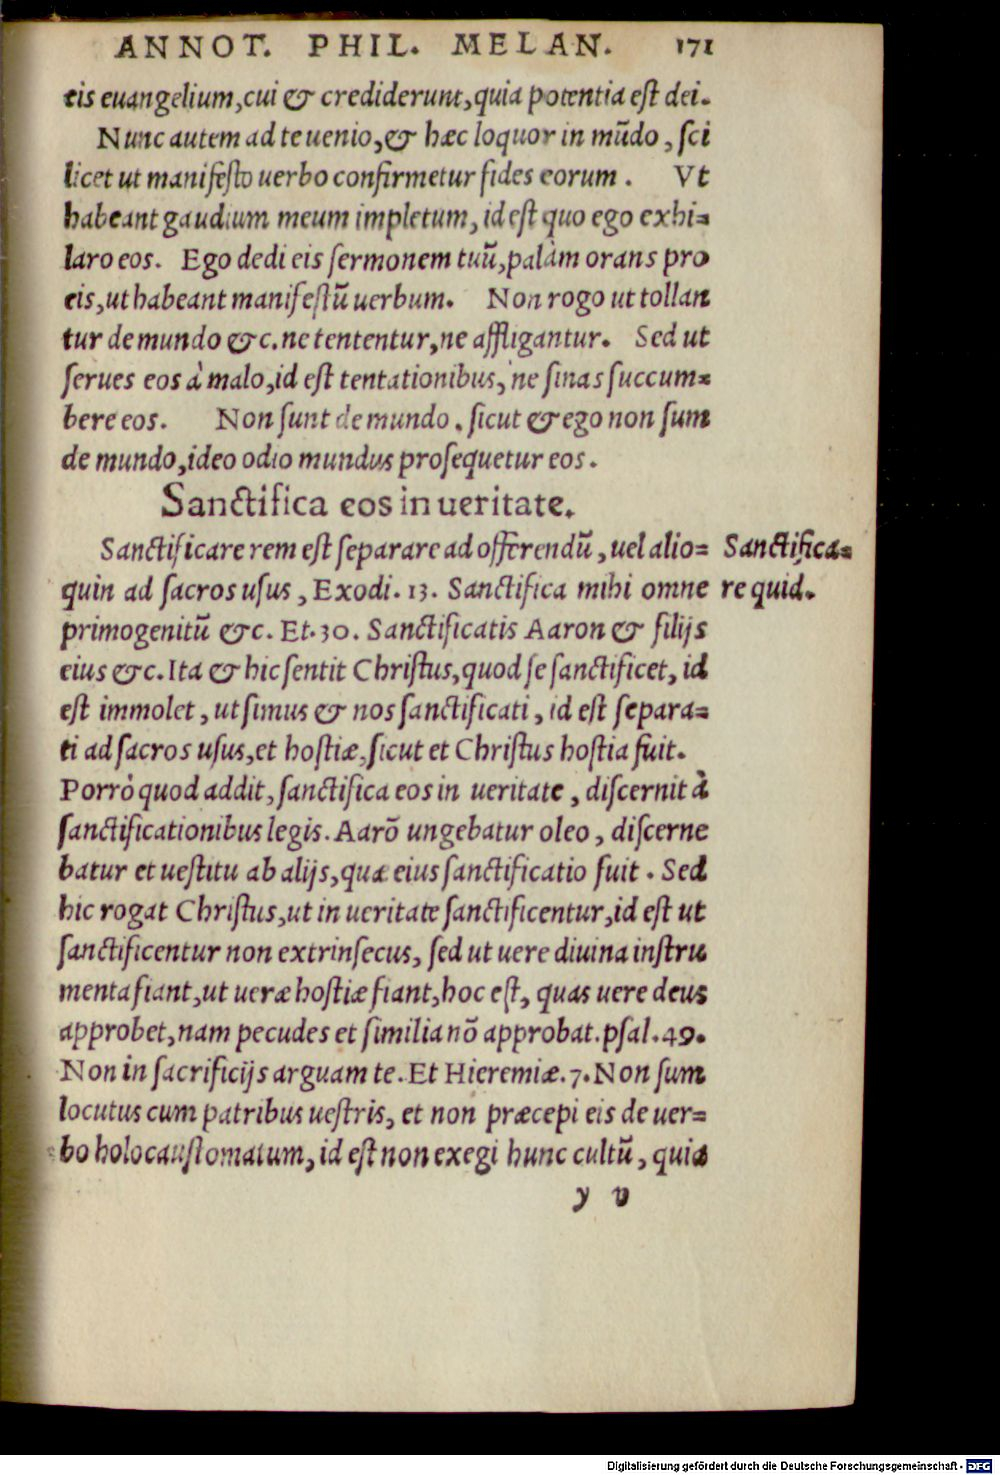 ANNOT. PHIL. MELAN. 171
eis euangelium, cui & crediderunt, quia potentia eſt dei.
Nunc autem ad te uenio, & hæc loquor in mũdo, ſci
licet ut manifeſto uerbo confirmetur fides eorum. Vt
habeant gaudium meum impletum, id eſt quo ego exhi=
laro eos. Ego dedi eis ſermonem tuũ, palàm orans pro
eis, ut habeant manifeſtũ uerbum. Non rogo ut tollan
tur de mundo &c. ne tententur, ne affligantur. Sed ut
ſerues eos à malo, id eſt tentationibus, ne ſinas ſuccum=
bere eos. Non ſunt de mundo. ſicut & ego non ſum
de mundo, ideo odio mundus proſequetur eos.
Sanctifica eos in ueritate.
Sanctificare rem eſt ſeparare ad offerendũ, uel alio=
quin ad ſacros uſus, Exodi. 13. Sanctifica mihi omne
primogenitũ &c. Et. 30. Sanctificatis Aaron & filijs
eius &c. Ita & hic ſentit Chriſtus, quod ſe ſanctificet, id
eſt immolet, ut ſimus & nos ſanctificati, id eſt ſepara=
ti ad ſacros uſus, et hoſtiæ, ſicut et Chriſtus hoſtia fuit.
Porrò quod addit, ſanctifica eos in ueritate, diſcernit à
ſanctificationibus legis. Aarõ ungebatur oleo, diſcerne
batur et ueſtitu ab alijs, quæ eius ſanctificatio fuit. Sed
hic rogat Chriſtus, ut in ueritate ſanctificentur, id eſt ut
ſanctificentur non extrinſecus, ſed ut uere diuina inſtru
menta fiant, ut ueræ hoſtiæ fiant, hoc eſt, quas uere deus
approbet, nam pecudes et ſimilia nõ approbat. pſal. 49.
Non in ſacrificijs arguam te. Et Hieremiæ. 7. Non ſum
locutus cum patribus ueſtris, et non præcepi eis de uer=
bo holocauſtomatum, id eſt non exegi hunc cultũ, quia
y v
Sanctifica=
re quid.
Digitalisierung gefördert durch die Deutsche Forschungsgemeinschaft - DFG